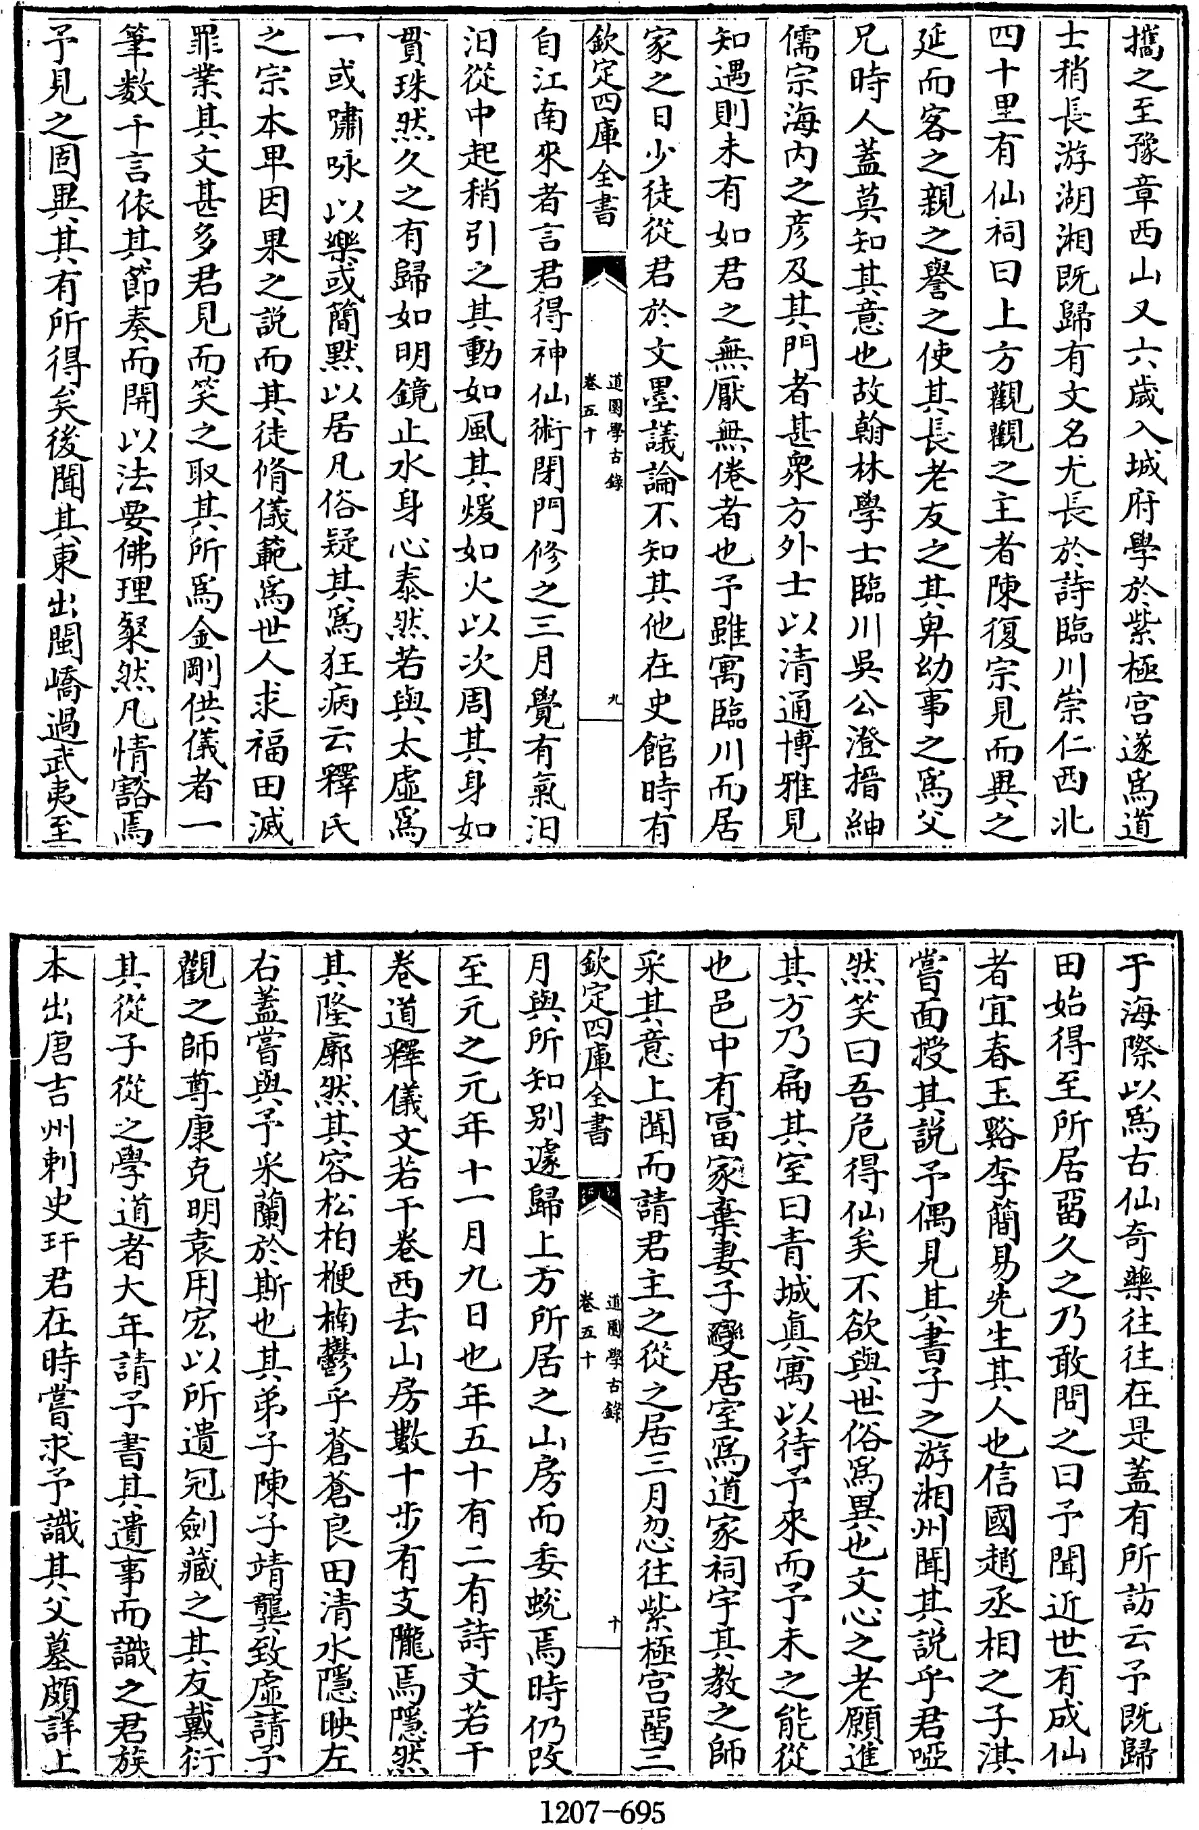 攜之至豫章西山又六歲入城府學於紫極宮遂為道
士稍長游湖湘既歸有文名尤長於詩臨川崇仁西北
四十里有仙祠曰上方觀觀之主者陳復宗見而異之
延而客之親之譽之使其長老友之其卑幼事之為父
兄時人蓋莫知其意也故翰林學士臨川吳公澄搢紳
儒宗海内之彥及其門者甚衆方外士以清通博雅見
知遇則未有如君之無厭無倦者也予雖寓臨川而居
家之日少徒從君於文墨議論不知其他在史館時有
欽定四庫全書
道園學古錄
卷五十
九
自江南來者言君得神仙術閉門修之三月覺有氣汨
汨從中起稍引之其動如風其煖如火以次周其身如
貫珠然久之有歸如明鏡止水身心泰然若與太虛為
一或嘯咏以樂或簡黙以居凡俗疑其為狂病云釋氏
之宗本卑因果之説而其徒脩儀範為世人求福田滅
罪業其文甚多君見而笑之取其所為金剛供儀者一
筆數千言依其節奏而開以法要佛理粲然凡情豁焉
予見之固異其有所得矣後聞其東出閩嶠過武夷至
于海際以為古仙奇藥往往在是蓋有所訪云予既歸
田始得至所居留久之乃敢問之曰予聞近世有成仙
者宜春玉谿李簡易先生其人也信國趙丞相之子淇
嘗面授其說予偶見其書子之游湘州聞其説乎君啞
然笑曰吾危得仙矣不欲與世俗為異也文心之老願進
其方乃扁其室曰青城真寓以待予來而予未之能從
也邑中有富家棄妻子變居室為道家祠宇其教之師
采其意上聞而請君主之從之居三月忽往紫極宮留三
欽定四庫全書
道園學古錄
卷五十
十
月與所知別遽歸上方所居之山房而委蛻焉時仍改
至元之元年十一月九日也年五十有二有詩文若干
卷道釋儀文若干卷西去山房數十步有支隴焉隱然
其隆廓然其容松柏楩楠鬱乎蒼蒼良田清水隱映左
右蓋嘗與予采蘭於斯也其弟子陳子靖龔致虛請予
觀之師尊康克明袁用宏以所遺冠劍藏之其友戴衍
其從子從之學道者大年請予書其遺事而識之君族
本出唐吉州刺史玕君在時嘗求予識其父墓頗詳上
1207-695